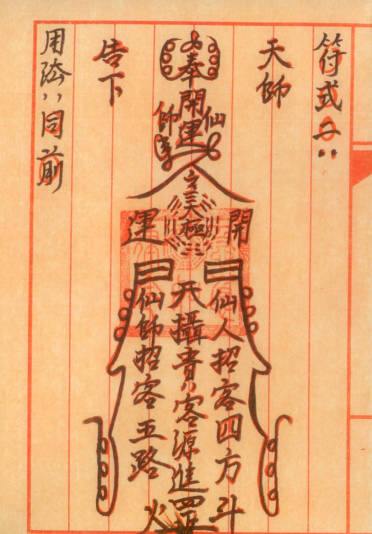 符式二:
天師
奉開運
仙師
告下
用法:同前
開運
太極
仙人招客四方斗
天攝貴客源進
仙師招客五路
火